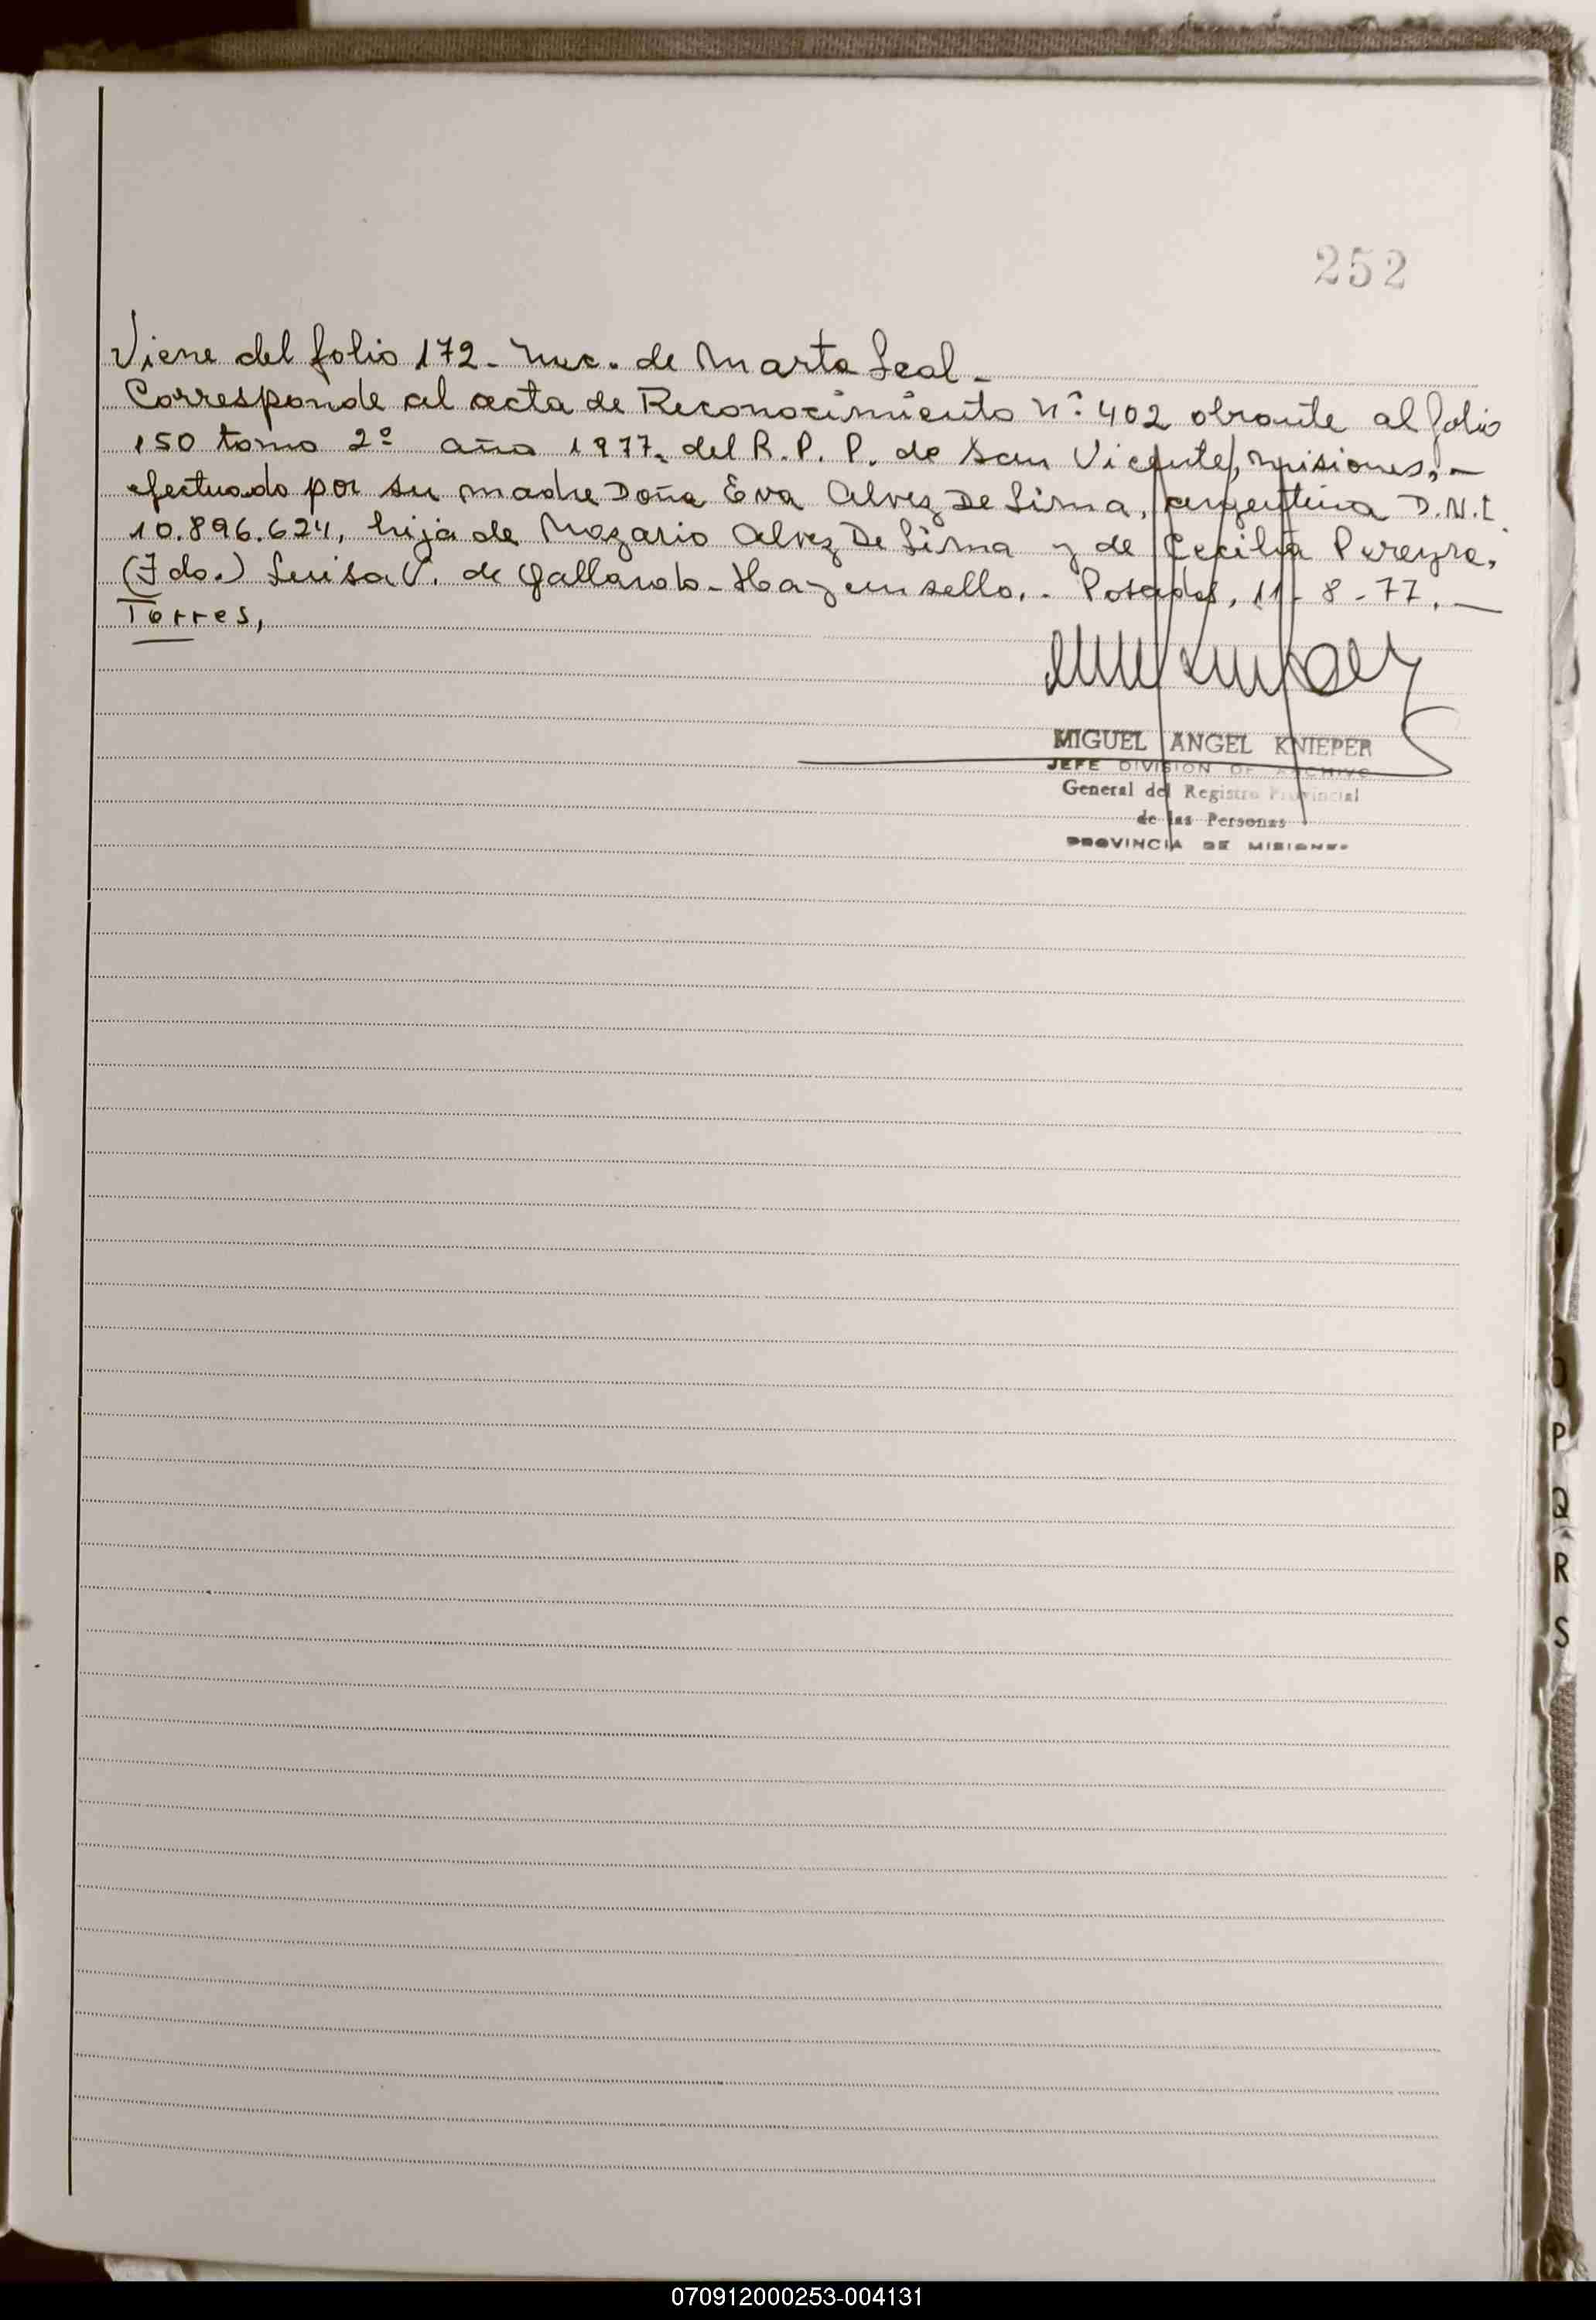 252
Viene del folio 172- Nac. de Marta Leal -
Corresponde al acta de Reconocimiento nº 402 obrante al folio
150 tomo 2º año 1977. del R. P. P. de San Vicente, Misiones, -
efectuado por su madre Doña Eva Alvez De Lima, argentina D.N.I.
10.896.624, hija de Nazario Alvez De Lima y de Cecilia Pereyra.
(Fdo.) Luisa V. de Gallardo - Hay un sello. - Posadas, 11 - 8 - 77. -
Torres,
MIGUEL ANGEL KNIEPER
JEFE DIVISION DE ARCHIVO
General del Registro Provincial
de las Personas
PROVINCIA DE MISIONES
P
Q
R
S
070912000253-004131